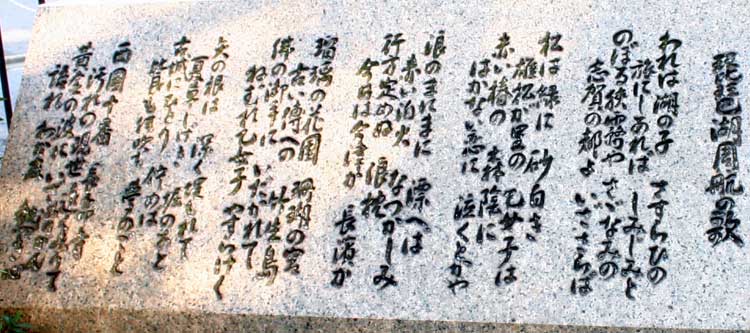 琵琶湖周航の歌
われは湖の子 さすらひの
旅にしあれば しみじみと
のぼる狭霧や さざなみの
志賀の都よ いざさらば
松は緑に 砂白き
雄松が里の 乙女子は
赤い椿の 森陰に
はかない恋に 泣くとかや
浪のまにまに 漂へば
赤い泊火 なつかしみ
行方定めぬ 浪枕
今日は今津か 長浜か
瑠璃の花園 珊瑚の宮
古い伝への 竹生島
佛の御手に いだかれて
ねむれ乙女子 やすらけく
矢の根は 深く埋もれて
夏草しげき 堀のあと
古城にひとり 佇めば
比良も伊吹も 夢のごと
西国十番 長命寺
汚れの現世 遠く去りて
黄金の波に いざ漕がん
語れ わが友 熱き心